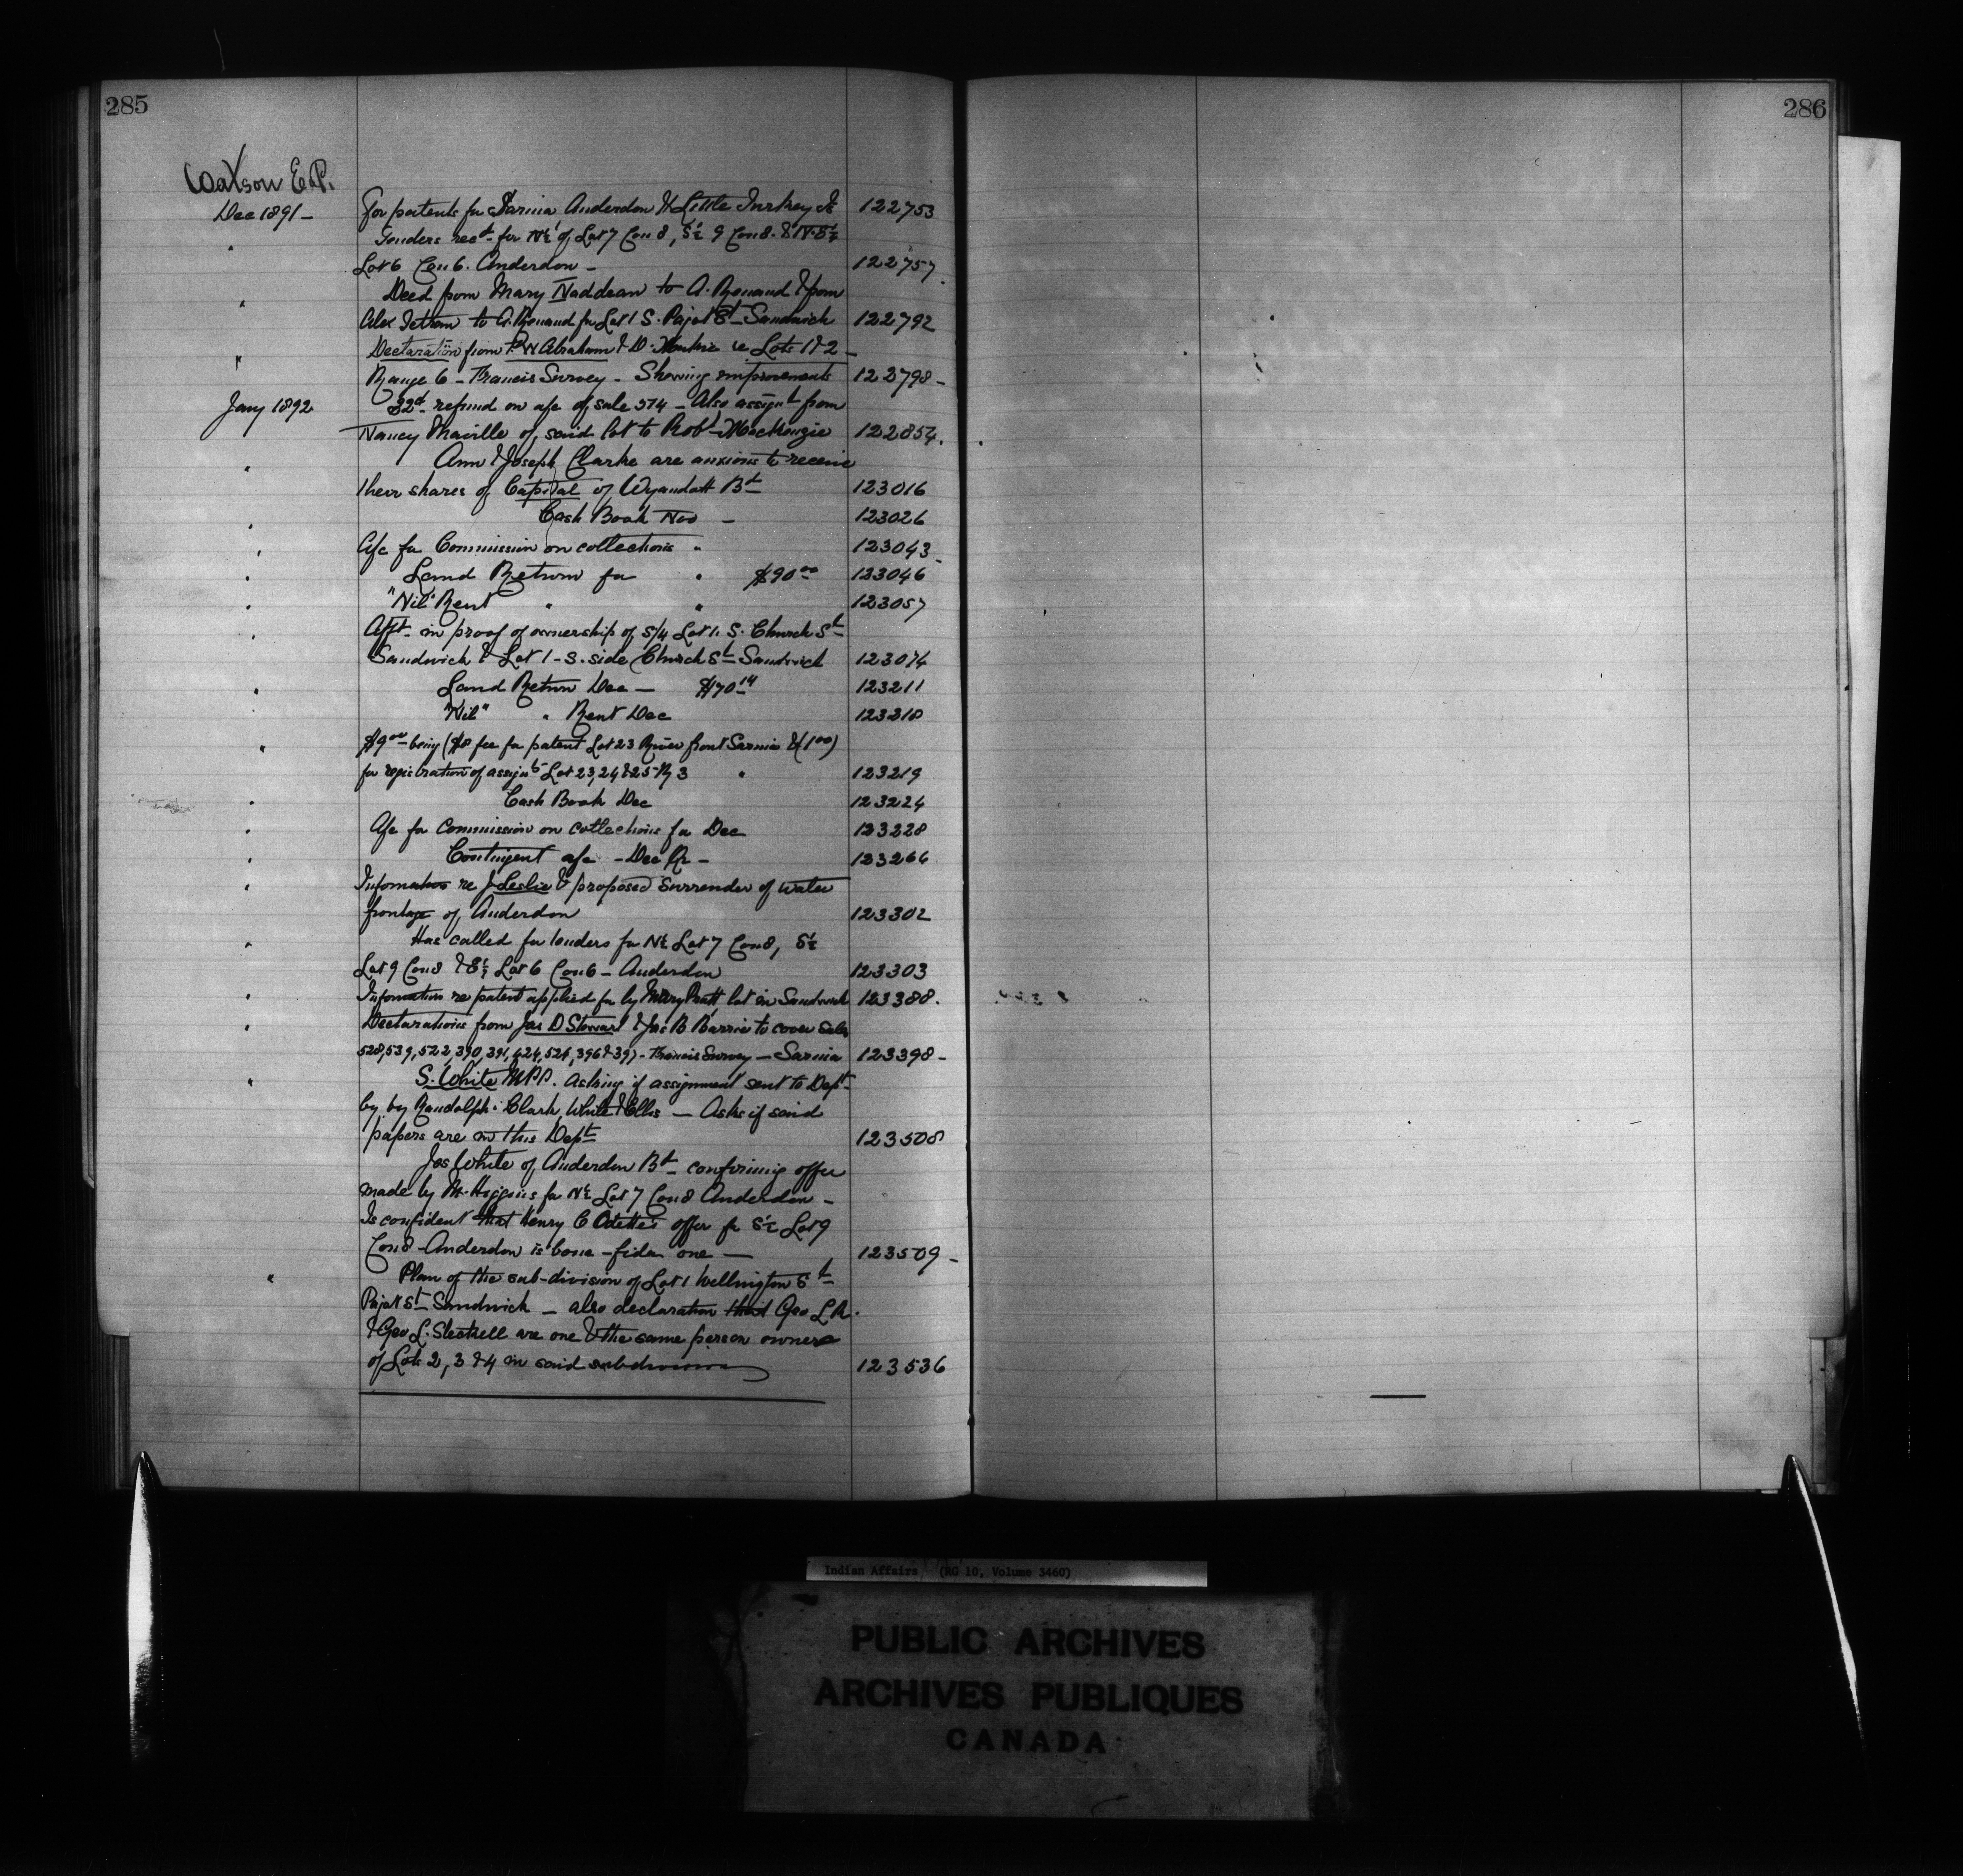 285
286
Watson E.P.
Dec 1891 – For patents for Sarnia, Anderdon & Little Turkey Is 122753
" Tenders recd for N½ of Lot 7 Con 8, S½ 9 Con 8. & N.E¼
Lot 6 Con 6. Anderdon – 122757
" Deed from Mary Naddean to A. Renaud & from
Alex to A. Renaud for Lot 1 S. Pajot St – Sandwich 122792
" Declaration from P. W Abraham & D. re Lots 1 & 2 –
Range 6 – Francis Survey – Showing improvements 122798 –
Jany 1892 refund on a/c of sale 574 – Also assignt from
Nancy of said lot to Robt MacKenzie 122854.
" Ann & Joseph Clarke are anxious to receive
their shares of Capital of Wyandott Bd 123016
" Cash Book Nov – 123026
" A/c for Commission on collections " 123043
" Land Return for " $90 00 123046
" "Nil" Rent " " 123057
" Afft in proof of ownership of S/4 Lot 1. S. Church St
Sandwich & Lot 1 – S. side Church St Sandwich 123074
" Land Return Dec – $70 14 123211
" "Nil" " Rent Dec 123218
" $9 00 being ($8 fee for patent Lot 23 River front Sarnia & 1 00)
for registration of assignts Lot 23, 24 & 25 – R 3 " 123219
" Cash Book Dec 123224
" A/c for Commission on collections for Dec 123228
" Contingent a/c – Dec Qr – 123266
" Information re J Leslie & proposed surrender of water
frontage of Anderdon 123302
" Has called for tenders for N½ Lot 7 Con 8, S½
Lot 9 Con 8 & E½ Lot 6 Con 6 – Anderdon 123303
" Information re patent applied for by Mary Pratt lot in Sandwich 123388.
" Declarations from Jas D Stewart & Jas B Barrie to cover Sales
528, 539, 522, 390, 391, 424, 521, 396 & 397 – Francis Survey – Sarnia 123398 –
" S. White M.P.P. Asking if assignment sent to Dept
by by Randolph Clark, White & Ellis – Asks if said
papers are in this Dept 123508
Jos White of Anderdon Bd – confirming offer
made by M. Higgins for N½ Lot 7 Con 8 Anderdon –
Is confident that Henry C Odette's offer for S½ Lot 9
Con 8 – Anderdon is bona – fide one – 123509 –
" Plan of the sub-division of Lot 1 Wellington St
Pajot St Sandwich – also declaration that Geo L R.
& Geo L. are one & the same person owners
of Lots 2, 3 & 4 in said subdivision 123536
Indian Affairs (RG 10, Volume 3460)
PUBLIC ARCHIVES
ARCHIVES PUBLIQUES
CANADA